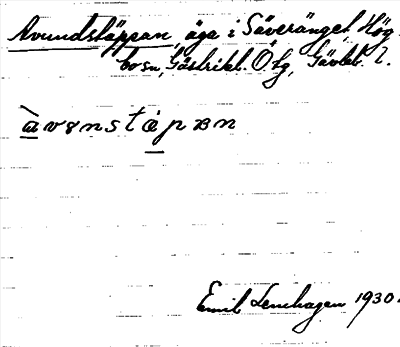 Avundstäppan, äga i Säverängel, Hög-
bo sn, Gästrikl. Ö tg, Gävleb. l.
avɵnstäpan
Emil Lenhagen 1930.